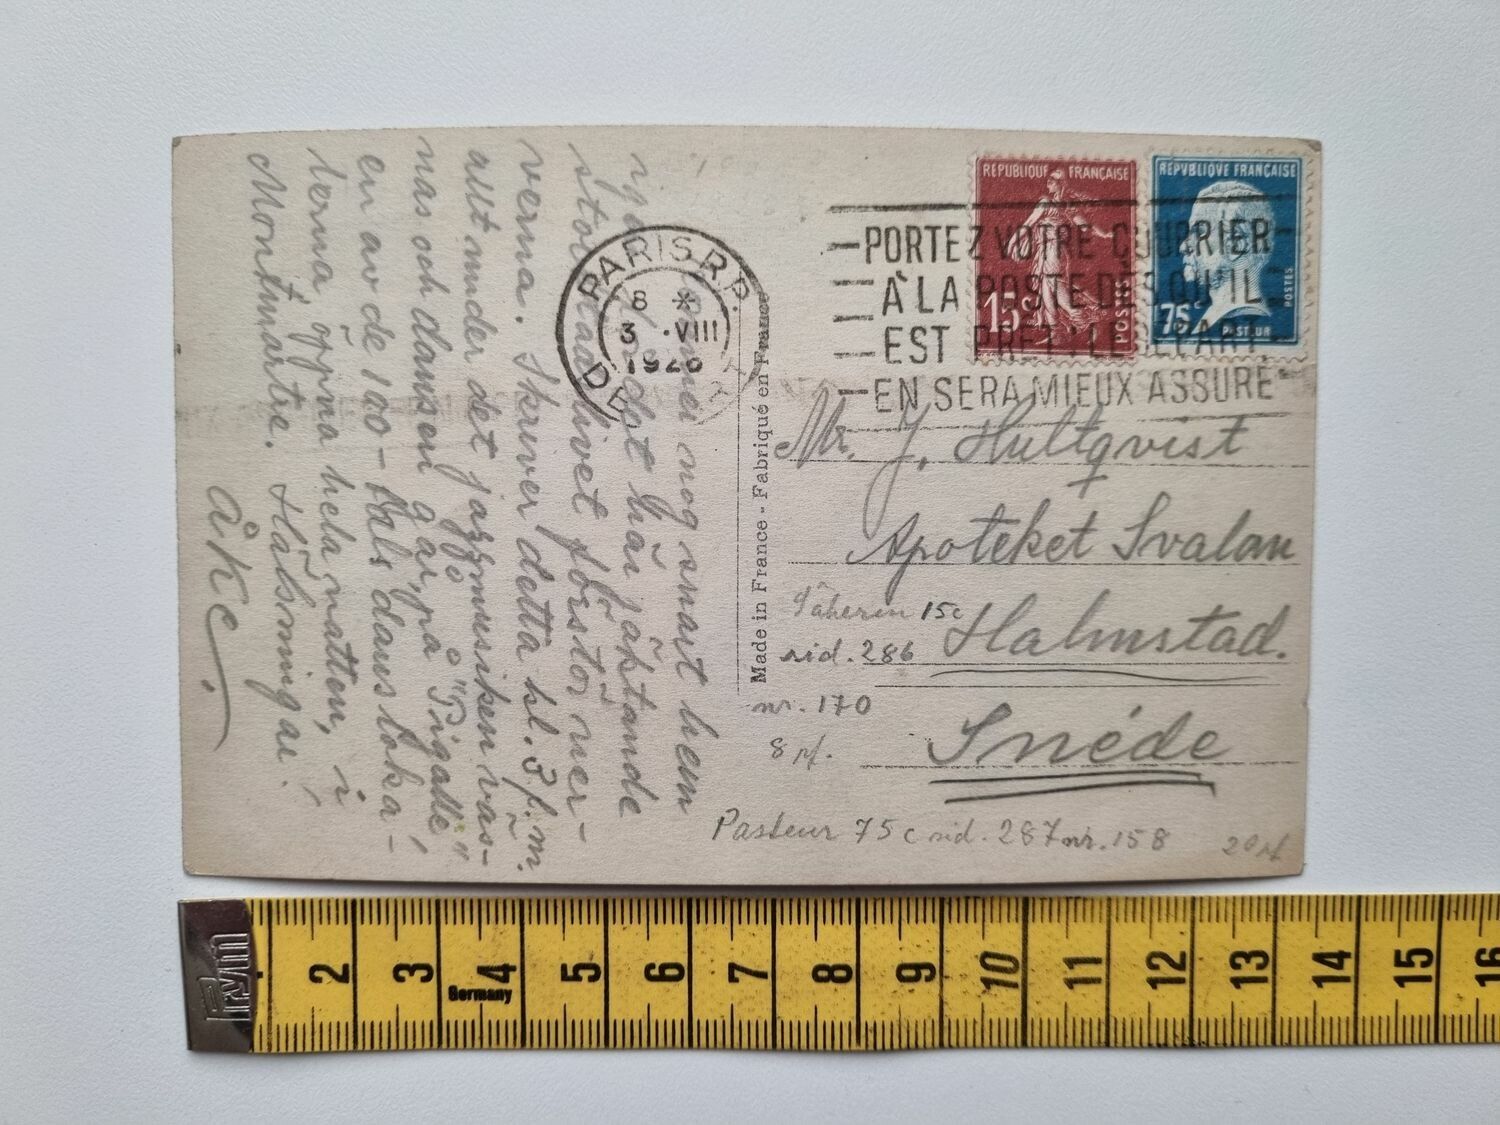 REPUBLIQUE FRANÇAISE
15c
POSTES
REPVBLIQVE FRANÇAISE
75c
POSTES
PASTEUR
PARIS R.P.
8 *
3 · VIII
1926
DÉPART
PORTEZ VOTRE COURRIER
À LA POSTE DÈS QU'IL
EST PRÊT: LE DÉPART
EN SERA MIEUX ASSURÉ
nog snart hem
här jäktande
storstadslivet förstör ner-
verna. Skriver detta kl. 3 f.m.
allt under det jazzmusiken vås-
nas och dansen går, på "Pigalle",
en av de 100-tals dansloka-
lerna, öppna hela natten, i
Montmartre. Hälsningar!
Åke.
Made in France - Fabriqué en France
Mr. J. Hultqvist
Apoteket Svalan
Halmstad.
Suéde
Täheren 15c
sid. 286
nr. 170
8 pf.
Pasteur 75c sid. 287 nr. 158
20 pf
Prym
Germany
2 3 4 5 6 7 8 9 10 11 12 13 14 15 16